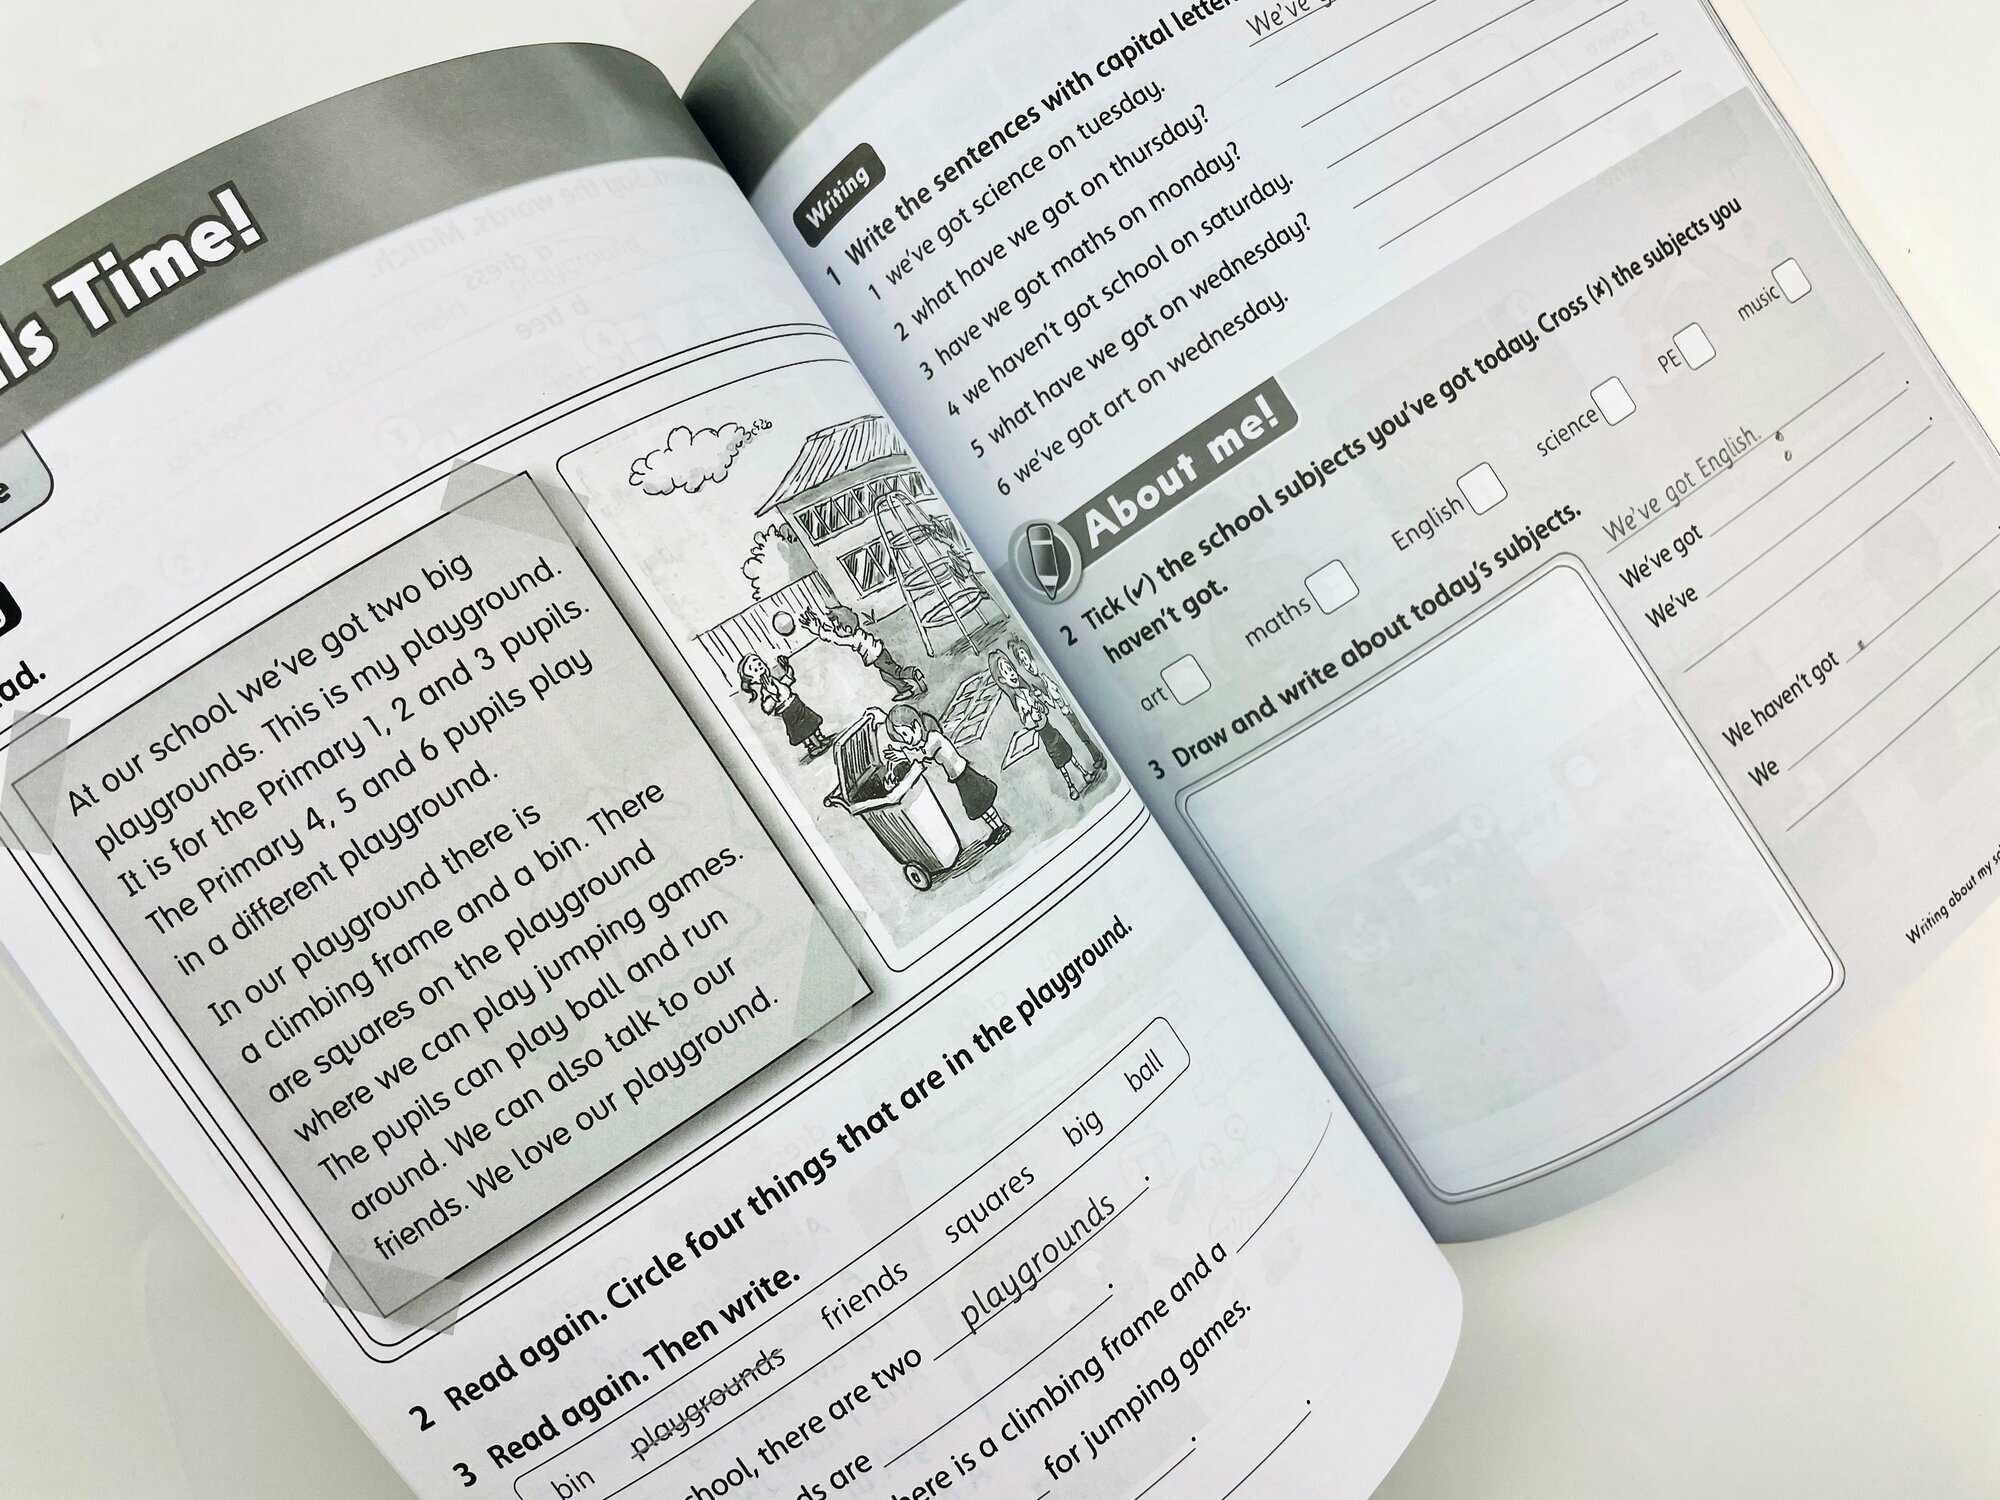 Time!
At our school we've got two big
playgrounds. This is my playground.
It is for the Primary 1, 2 and 3 pupils.
The Primary 4, 5 and 6 pupils play
in a different playground.
In our playground there is
a climbing frame and a bin. There
are squares on the playground
where we can play jumping games.
The pupils can play ball and run
around. We can also talk to our
friends. We love our playground.
2 Read again. Circle four things that are in the playground.
3 Read again. Then write.
bin playgrounds friends squares big ball
there are two playgrounds.
are
is a climbing frame and a
for jumping games.
Writing
1 Write the sentences with capital
We've
1 we've got science on tuesday.
2 what have we got on thursday?
3 have we got maths on monday?
4 we haven't got school on saturday.
5 what have we got on wednesday?
6 we've got art on wednesday.
About me!
2 Tick (✓) the school subjects you've got today. Cross (✗) the subjects you
haven't got.
art maths English science PE music
3 Draw and write about today's subjects.
We've got English.
We've got
We've
We haven't got
We
Writing about my